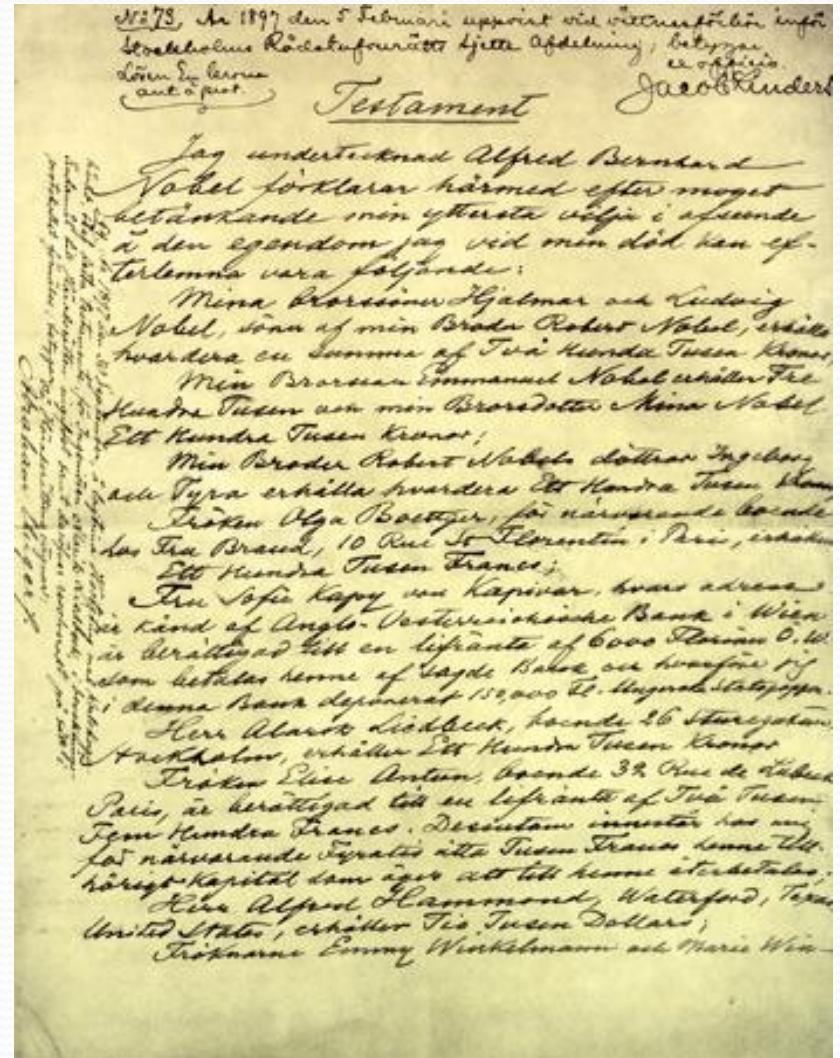 No 73. År 1897 den 5 Februari uppvist vid vittnesförhör inför
Stockholms Rådstufvurätts sjette Afdelning, betygar
Lösen En krona
ex officio.
Testament
Jag undertecknad Alfred Bernhard
Nobel förklarar härmed efter moget
betänkande min yttersta vilja i afseende
å den egendom jag vid min död kan ef-
terlemna vara följande:
Mina Brorsöner Hjalmar och Ludvig
Nobel, söner af min Broder Robert Nobel, erhålla
hvardera en summa af Två Hundra Tusen Kronor;
Min Brorson Emmanuel Nobel erhåller Tre
Hundra Tusen och min Brorsdotter Mina Nobel
Ett Hundra Tusen Kronor;
Min Broder Robert Nobels döttrar Ingeborg
och Tyra erhålla hvardera Ett Hundra Tusen Kronor
Fröken Olga Boettger, för närvarande boende
hos Fru Brand, 10 Rue St Florentin i Paris, erhåller
Ett Hundra Tusen Francs;
Fru Sofie Kapy von Kapivar, hvars adress
är känd af Anglo-Oesterreichische Bank i Wien
är berättigad till en lifränta af 6000 Florins Ö.W.
som betalas henne af sagde Bank och hvarföre jag
i denna Bank deponerat 150,000 Fl. i Ungerska Statspapper.
Herr Alarik Liedbeck, boende 26 Sturegatan,
Stockholm, erhåller Ett Hundra Tusen Kronor
Fröken Elise Antun, boende 32 Rue de Lubeck
Paris, är berättigad till en lifränta af Två Tusen
Fem Hundra Francs. Dessutom innestår hos mig
för närvarande Fyratio åtta Tusen Francs henne till-
hörigt Kapital som äger att till henne återbetalas;
Herr Alfred Hammond, Waterford, Texas
United States, erhåller Tio Tusen Dollars;
Fröknarne Emmy Winkelmann och Marie Win-